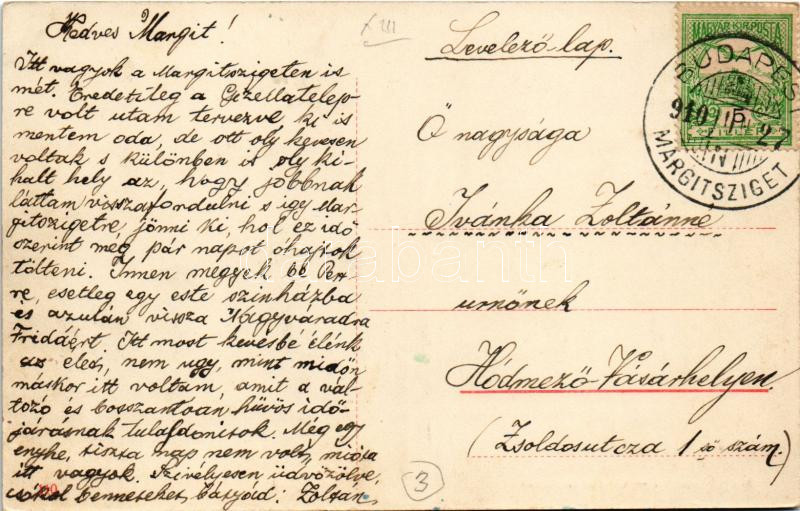 Kedves Margit!
Itt vagyok a Margitszigeten is
mét. Eredetileg a Gizellatelep-
re volt utam tervezve ki is
mentem oda, de ott oly kevesen
voltak s különben is oly ki-
halt hely az, hogy jobbnak
láttam visszafordulni s igy Mar-
gitszigetre, jönni ki, hol ez idő
szerint még pár napot óhajtok
tölteni. Innen megyek be Pest-
re, esetleg egy este szinházba
és azután vissza Nagyváradra
Fridáért. Itt most kevésbé élénk
az élet, nem ugy, mint midőn
máskor itt voltam, amit a vál-
tozó és bosszantóan hűvös idő-
járásnak tulajdonitok. Még egy
enyhe, tiszta nap nem volt, mióta
itt vagyok. Szivélyesen üdvözölve,
csókol benneteket, bátyád: Zoltán
Levelező-lap.
Ő nagysága
Ivánka Zoltánne
urnőnek
Hódmező-Vásárhelyen
(Zsoldosutcza 1 ső szám.)
MAGYAR KIR. POSTA
BUDAPEST
910 JUN 27
MARGITSZIGET
3
darabanth